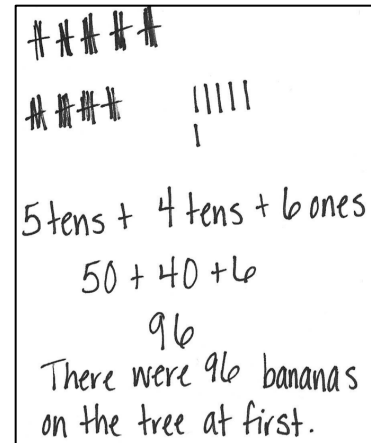 5 tens + 4 tens + 6 ones
50 + 40 + 6
96
There were 96 bananas
on the tree at first.